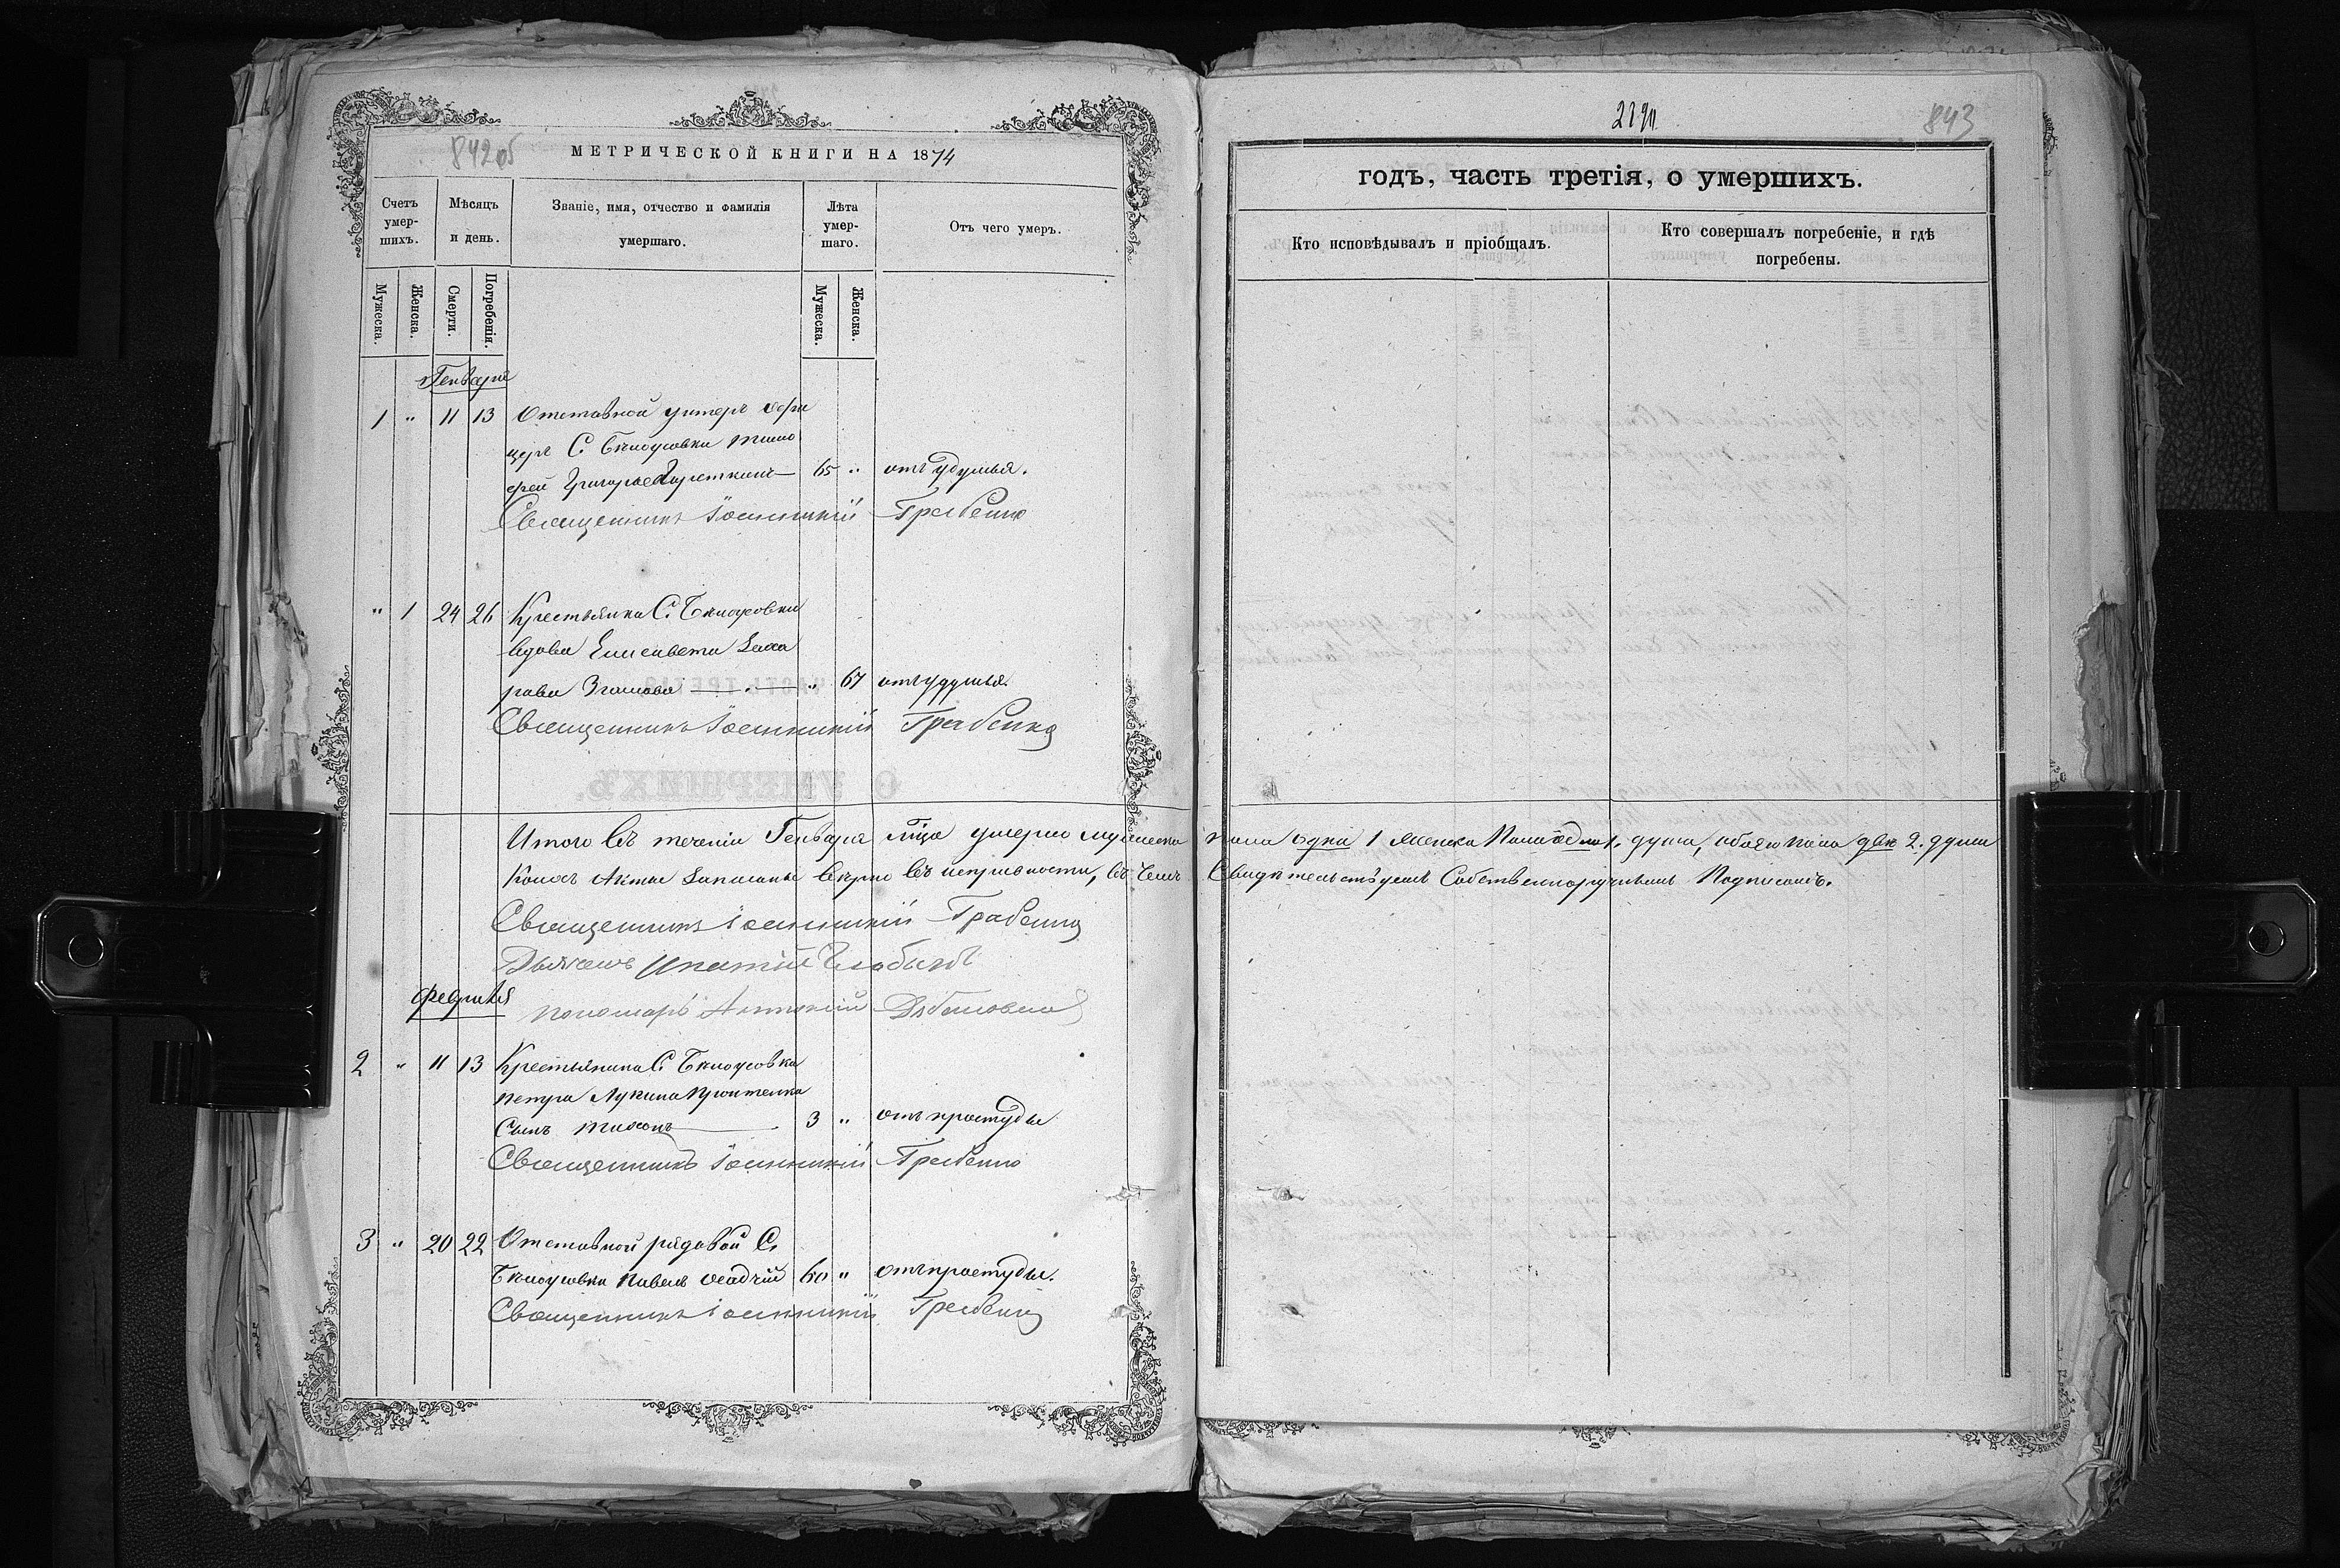 842об
МЕТРИЧЕСКОЙ КНИГИ НА 1874
Счетъ умер-шихъ.
Мѣсяцъ и день.
Званіе, имя, отчество и фамилія умершаго.
Лѣта умер-шаго.
Отъ чего умеръ.
Мужеска.
Женска.
Смерти.
Погребенія.
Мужеска.
Женска.
Генваря
1 " 11 13 Отставной унтеръ офи
церъ С. Бѣлоусовки Тимо
фей Григорьевъ 65 " отъ удушья.
Священникъ Іоанникій Гребенко
" 1 24 26 Крестьянка С. Бѣлоусовки
вдова Елисавета Заха
рова " 67 отъ удушья.
Священникъ Іоанникій Гребенко
Итого въ теченіи Генваря мѣца умерло мужеска
коихъ Акты записаны вѣрно въ исправности, въ чемъ
Священникъ Іоанникій Гребенко
Дьячекъ Ипатій
февраля
пономарь Антоній
2 " 11 13 Крестьянина С. Бѣлоусовки
Петра Лукина
Сынъ Тихонъ 3 " отъ простуды
Священникъ Іоанникій Гребенко
3 " 20 22 Отставной рядовой С.
Бѣлоусовки Павелъ Осадчій 60 " отъ простуды.
Священникъ Іоанникій Гребенко
843
годъ, часть третія, о умершихъ.
Кто исповѣдывалъ и пріобщалъ.
Кто совершалъ погребеніе, и гдѣ
погребены.
пола одна 1 женска пола одна 1. душа, обоего пола двѣ 2. души
Свидѣтельствуемъ Собственноручнымъ Подписомъ.